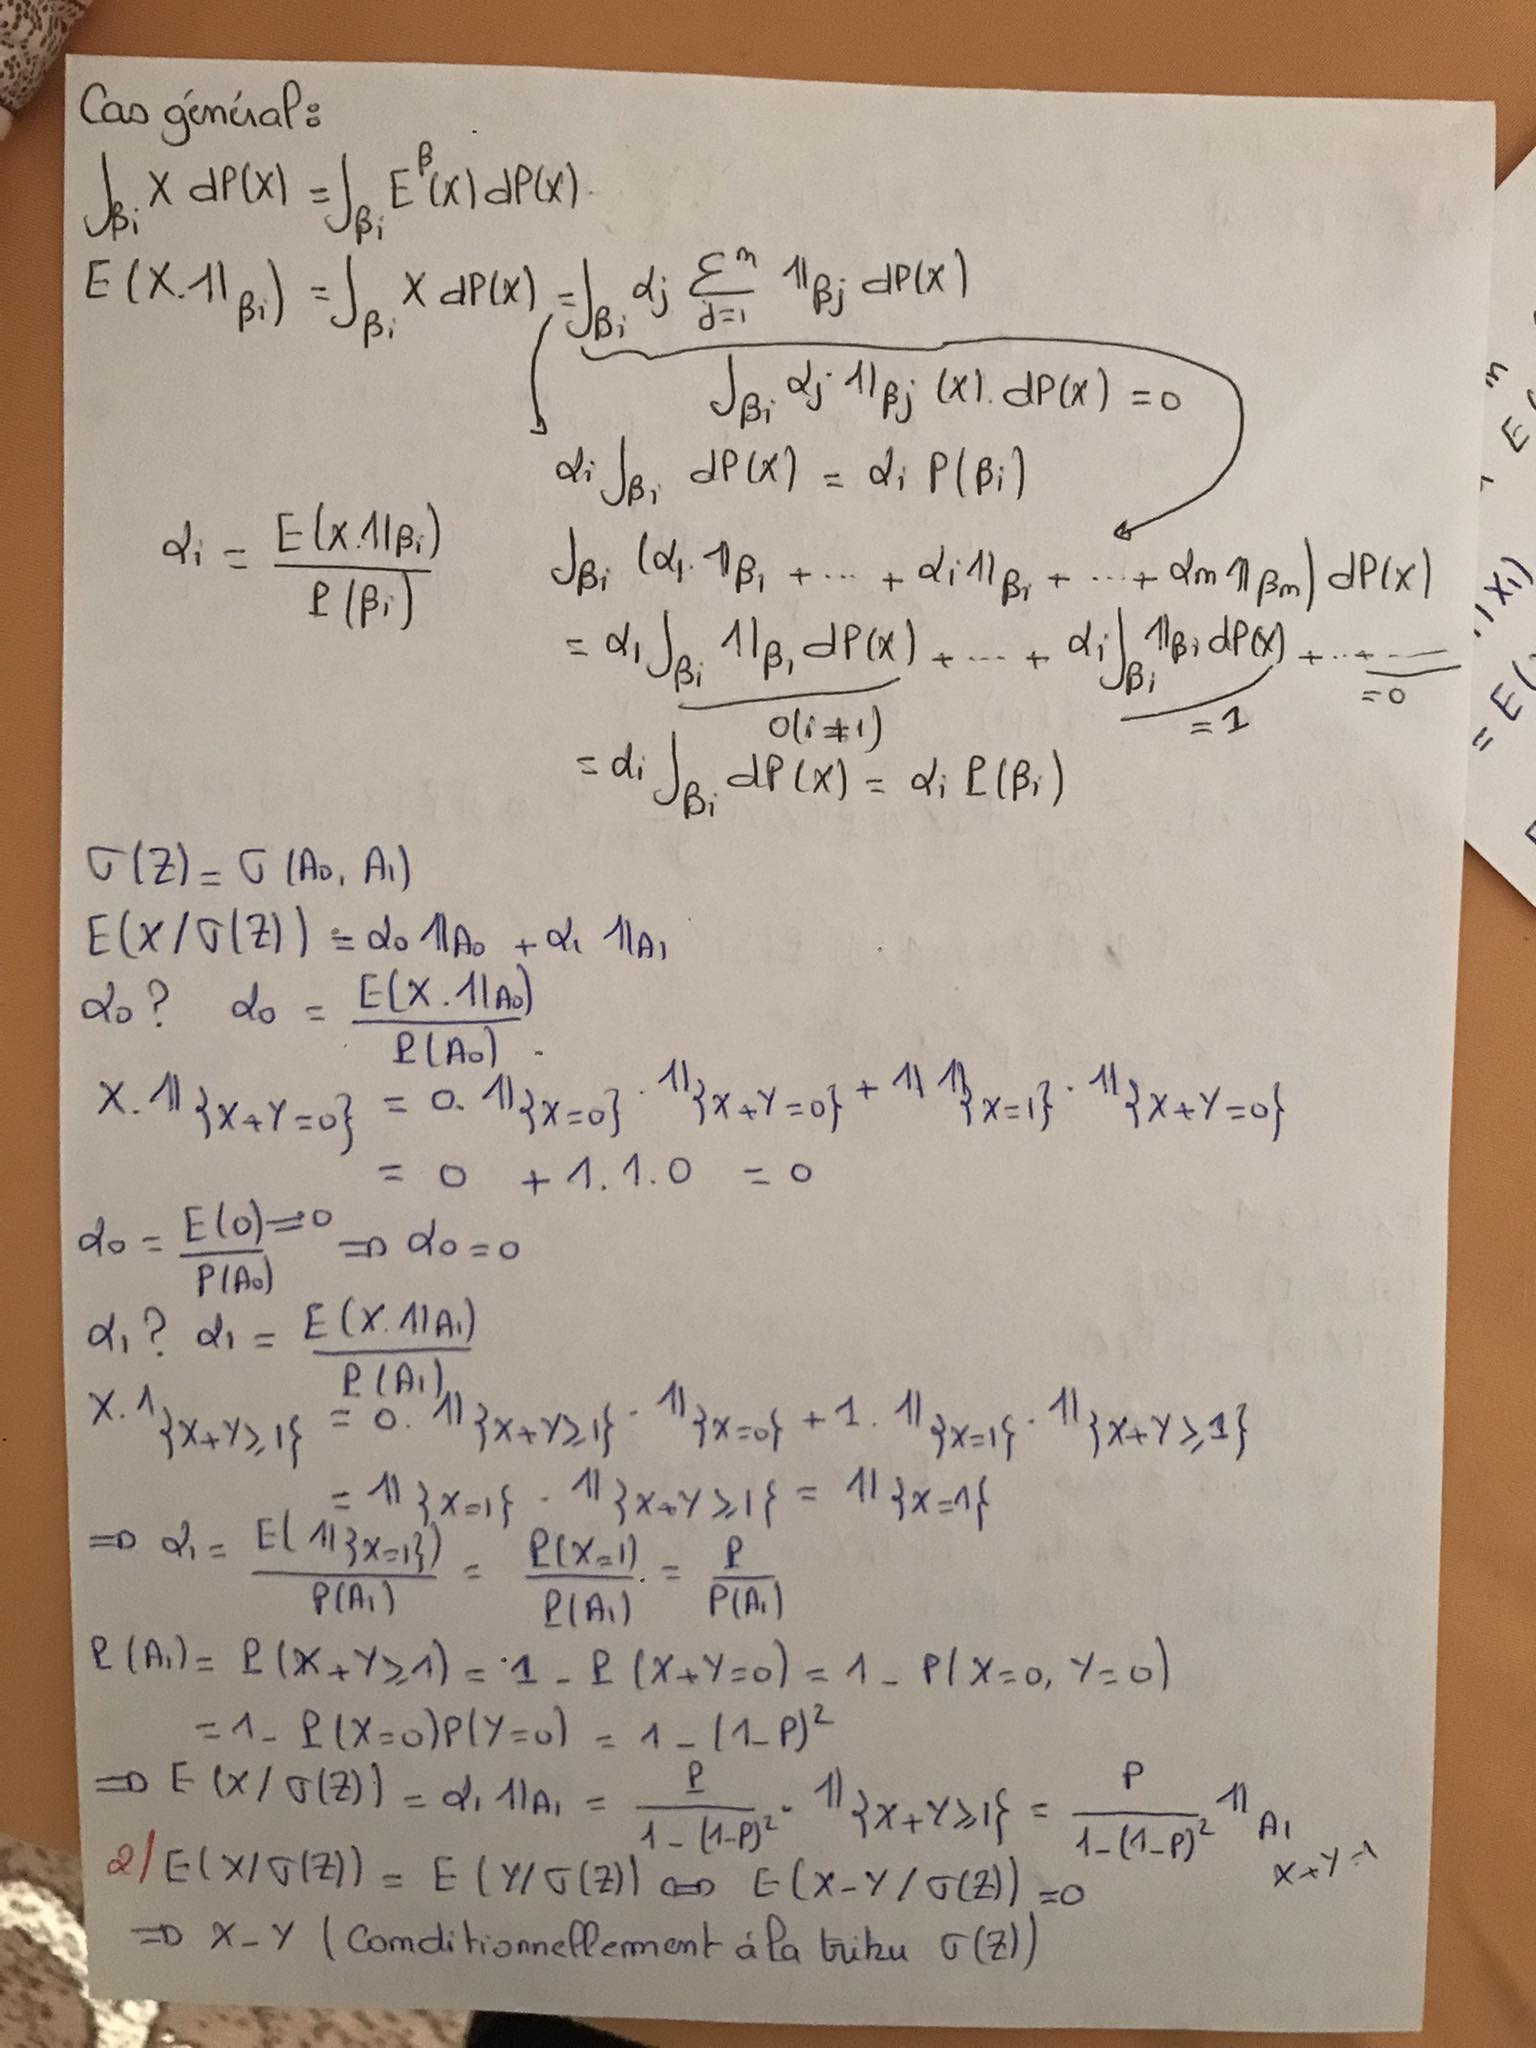 Cas général:
∫_βi X dP(X) = ∫_βi E^β(X) dP(X).
E(X.1l_βi) = ∫_βi X dP(X) = ∫_βi αj Σ_{j=1}^n 1l_βj dP(X)
∫_βi αj 1l_βj (X). dP(X) = 0
αi ∫_βi dP(X) = αi P(βi)
αi = E(X.1l_βi) / P(βi)
∫_βi (α1. 1l_β1 + ... + αi 1l_βi + ... + αn 1l_βn) dP(X)
= α1 ∫_βi 1l_β1 dP(X) + ... + αi ∫_βi 1l_βi dP(X) + ...
0(i≠1) = 1 = 0
= αi ∫_βi dP(X) = αi P(βi)
σ(Z) = σ(A0, A1)
E(X/σ(Z)) = α0 1l_A0 + α1 1l_A1
α0? α0 = E(X.1l_A0) / P(A0)
X.1l_{X+Y=0} = 0.1l_{X=0}.1l_{X+Y=0} + 1.1l_{X=1}.1l_{X+Y=0}
= 0 + 1.1.0 = 0
α0 = E(0) / P(A0) = 0 ⇒ α0 = 0
α1? α1 = E(X.1l_A1) / P(A1)
X.1_{X+Y≥1} = 0.1l_{X+Y≥1}.1l_{X=0} + 1.1l_{X=1}.1l_{X+Y≥1}
= 1l_{X=1}.1l_{X+Y≥1} = 1l_{X=1}
⇒ α1 = E(1l_{X=1}) / P(A1) = P(X=1) / P(A1) = P / P(A1)
P(A1) = P(X+Y≥1) = 1 - P(X+Y=0) = 1 - P(X=0, Y=0)
= 1 - P(X=0)P(Y=0) = 1 - (1-P)²
⇒ E(X/σ(Z)) = α1 1l_A1 = P / (1-(1-P)²) . 1l_{X+Y≥1} = P / (1-(1-P)²) 1l_A1
2/ E(X/σ(Z)) = E(Y/σ(Z)) ⇔ E(X-Y/σ(Z)) = 0
⇒ X-Y (Conditionnellement à la tribu σ(Z))